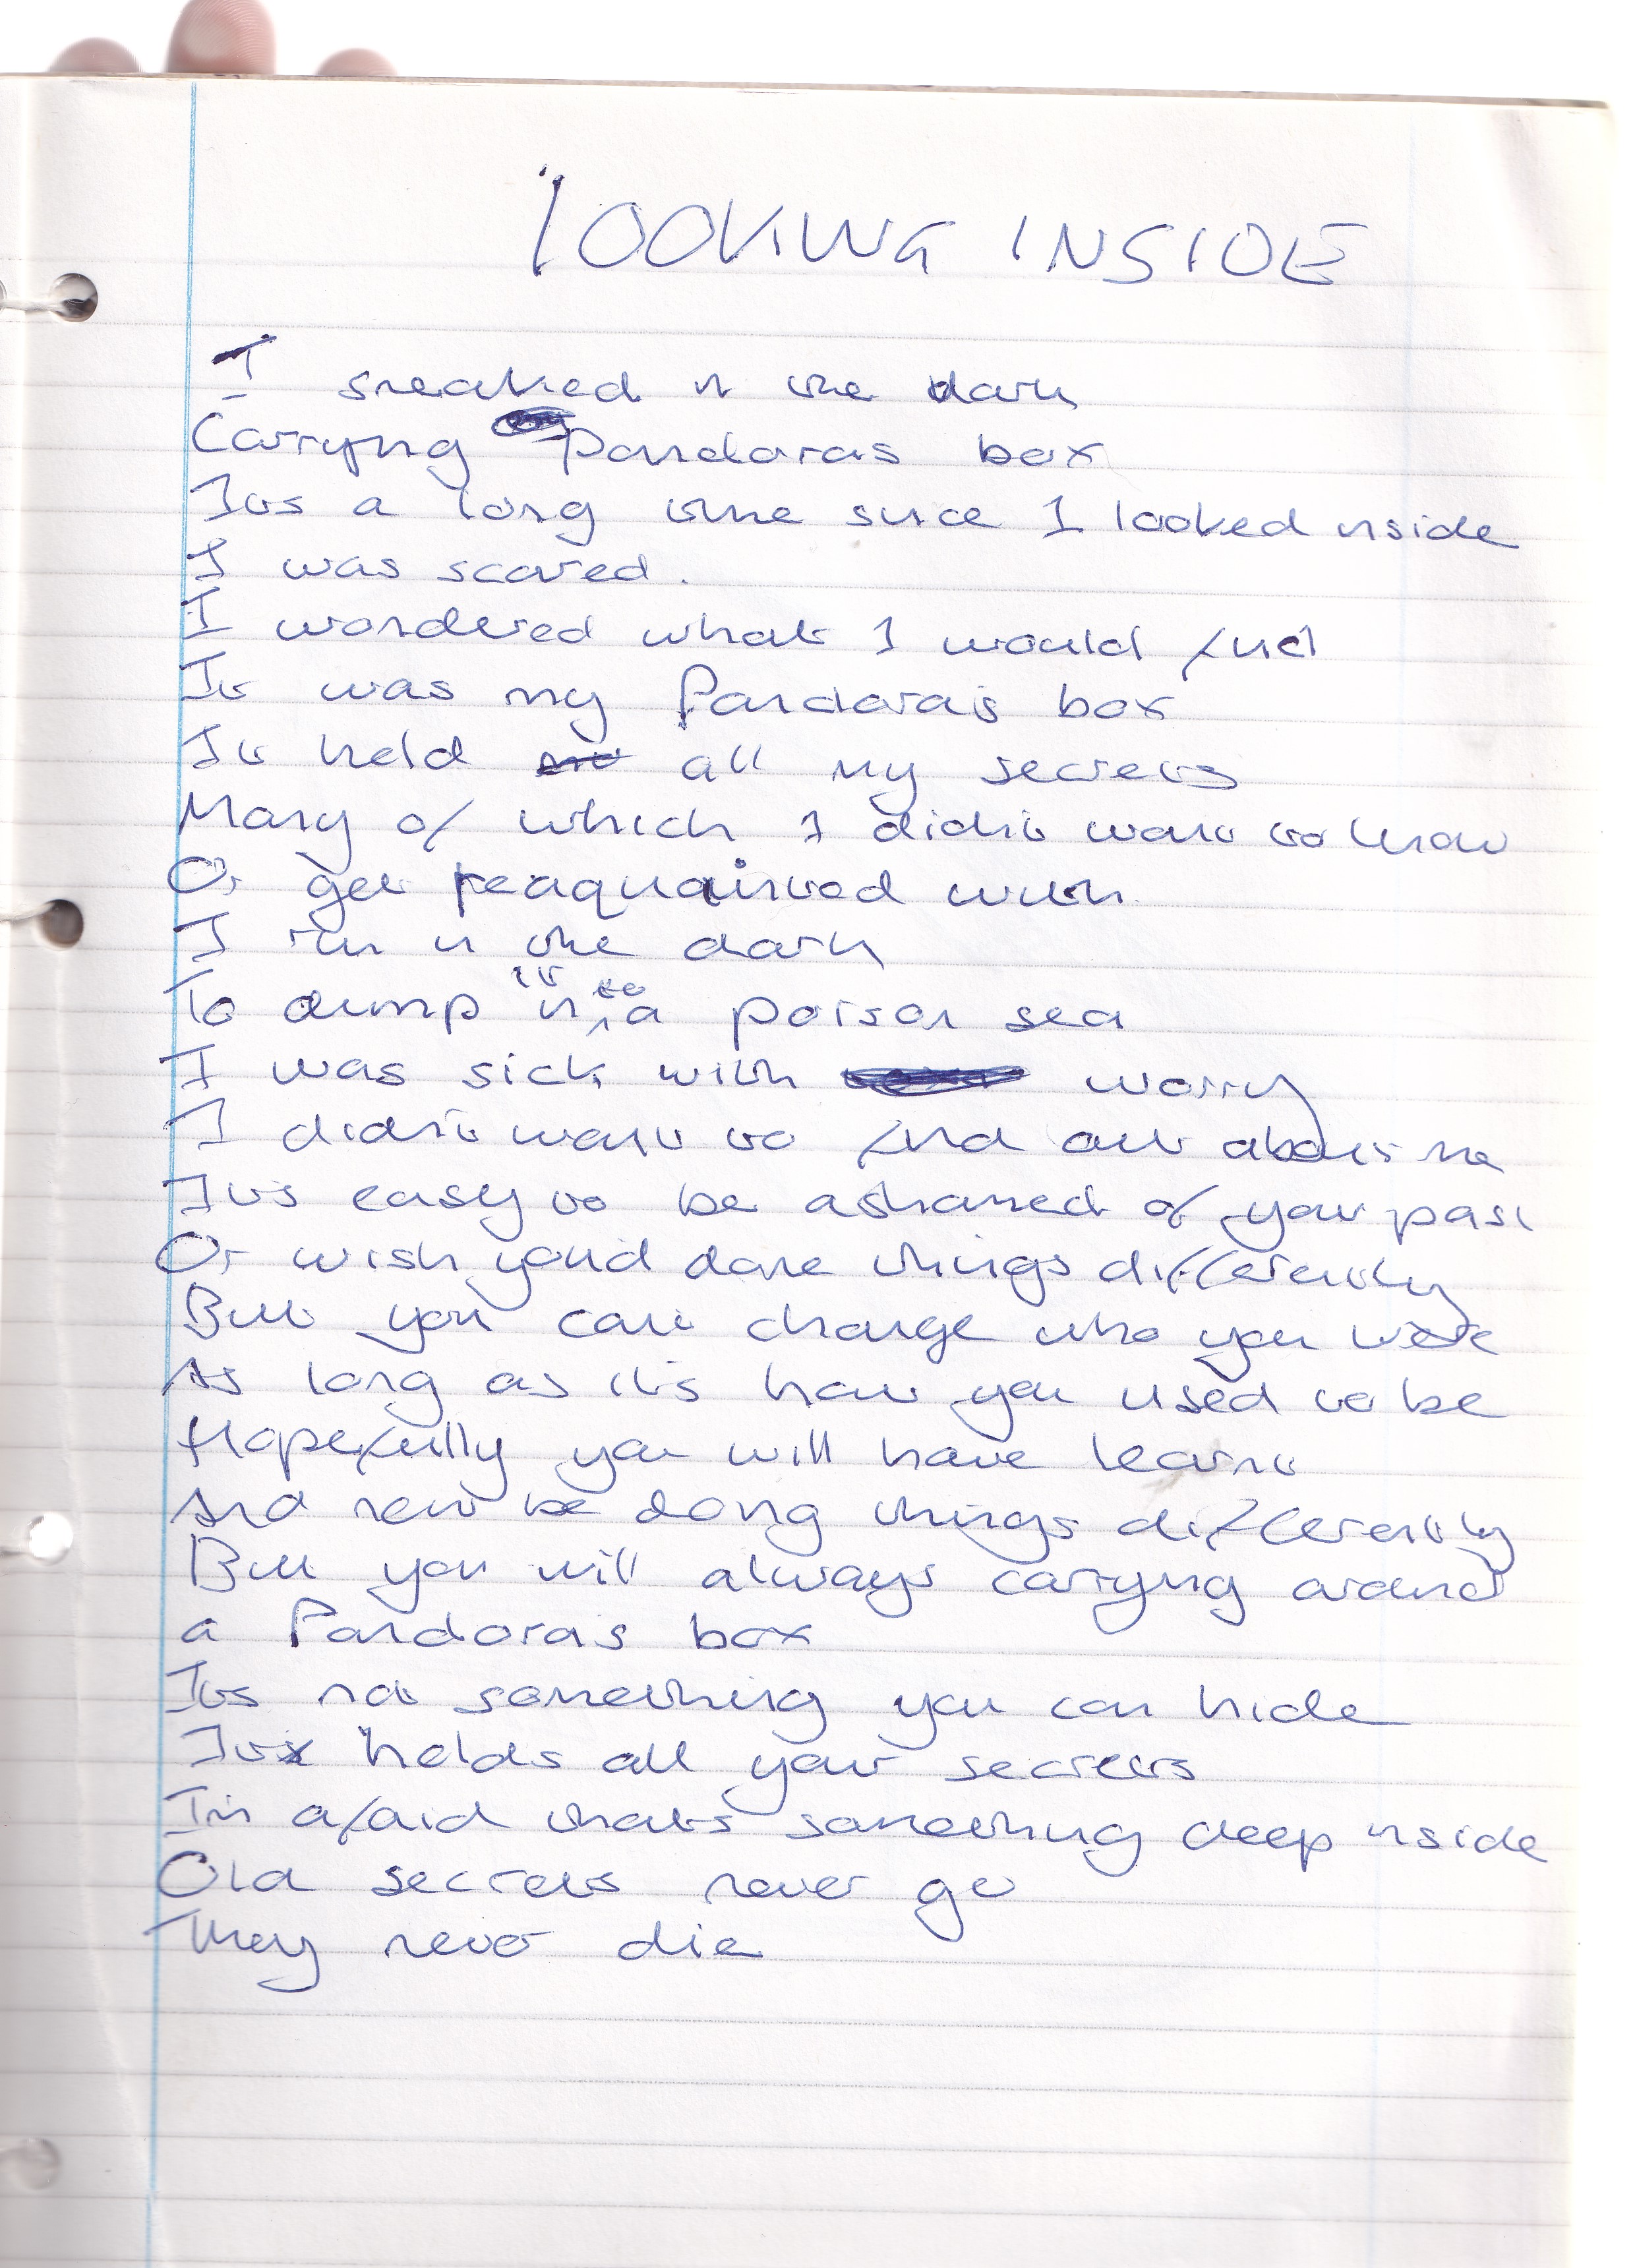 LOOKING INSIDE
I sneaked in the dark
Carrying Pandoras box
Its a long time since I looked inside
I was scared.
I wondered what I would find
It was my Pandora's box
It held all my secrets
Many of which I didn't want to know
Or get reaquainted with
I ran in the dark
To dump it into a poison sea
I was sick with worry
I didn't want to find out about me
It's easy to be ashamed of your past
Or wish you'd done things differently
But you can't change who you were
As long as it's how you used to be
Hopefully you will have learnt
And now be doing things differently
But you will always carrying around
a Pandora's box
Its not something you can hide
It holds all your secrets
I'm afraid thats something deep inside
Old secrets never go
They never die